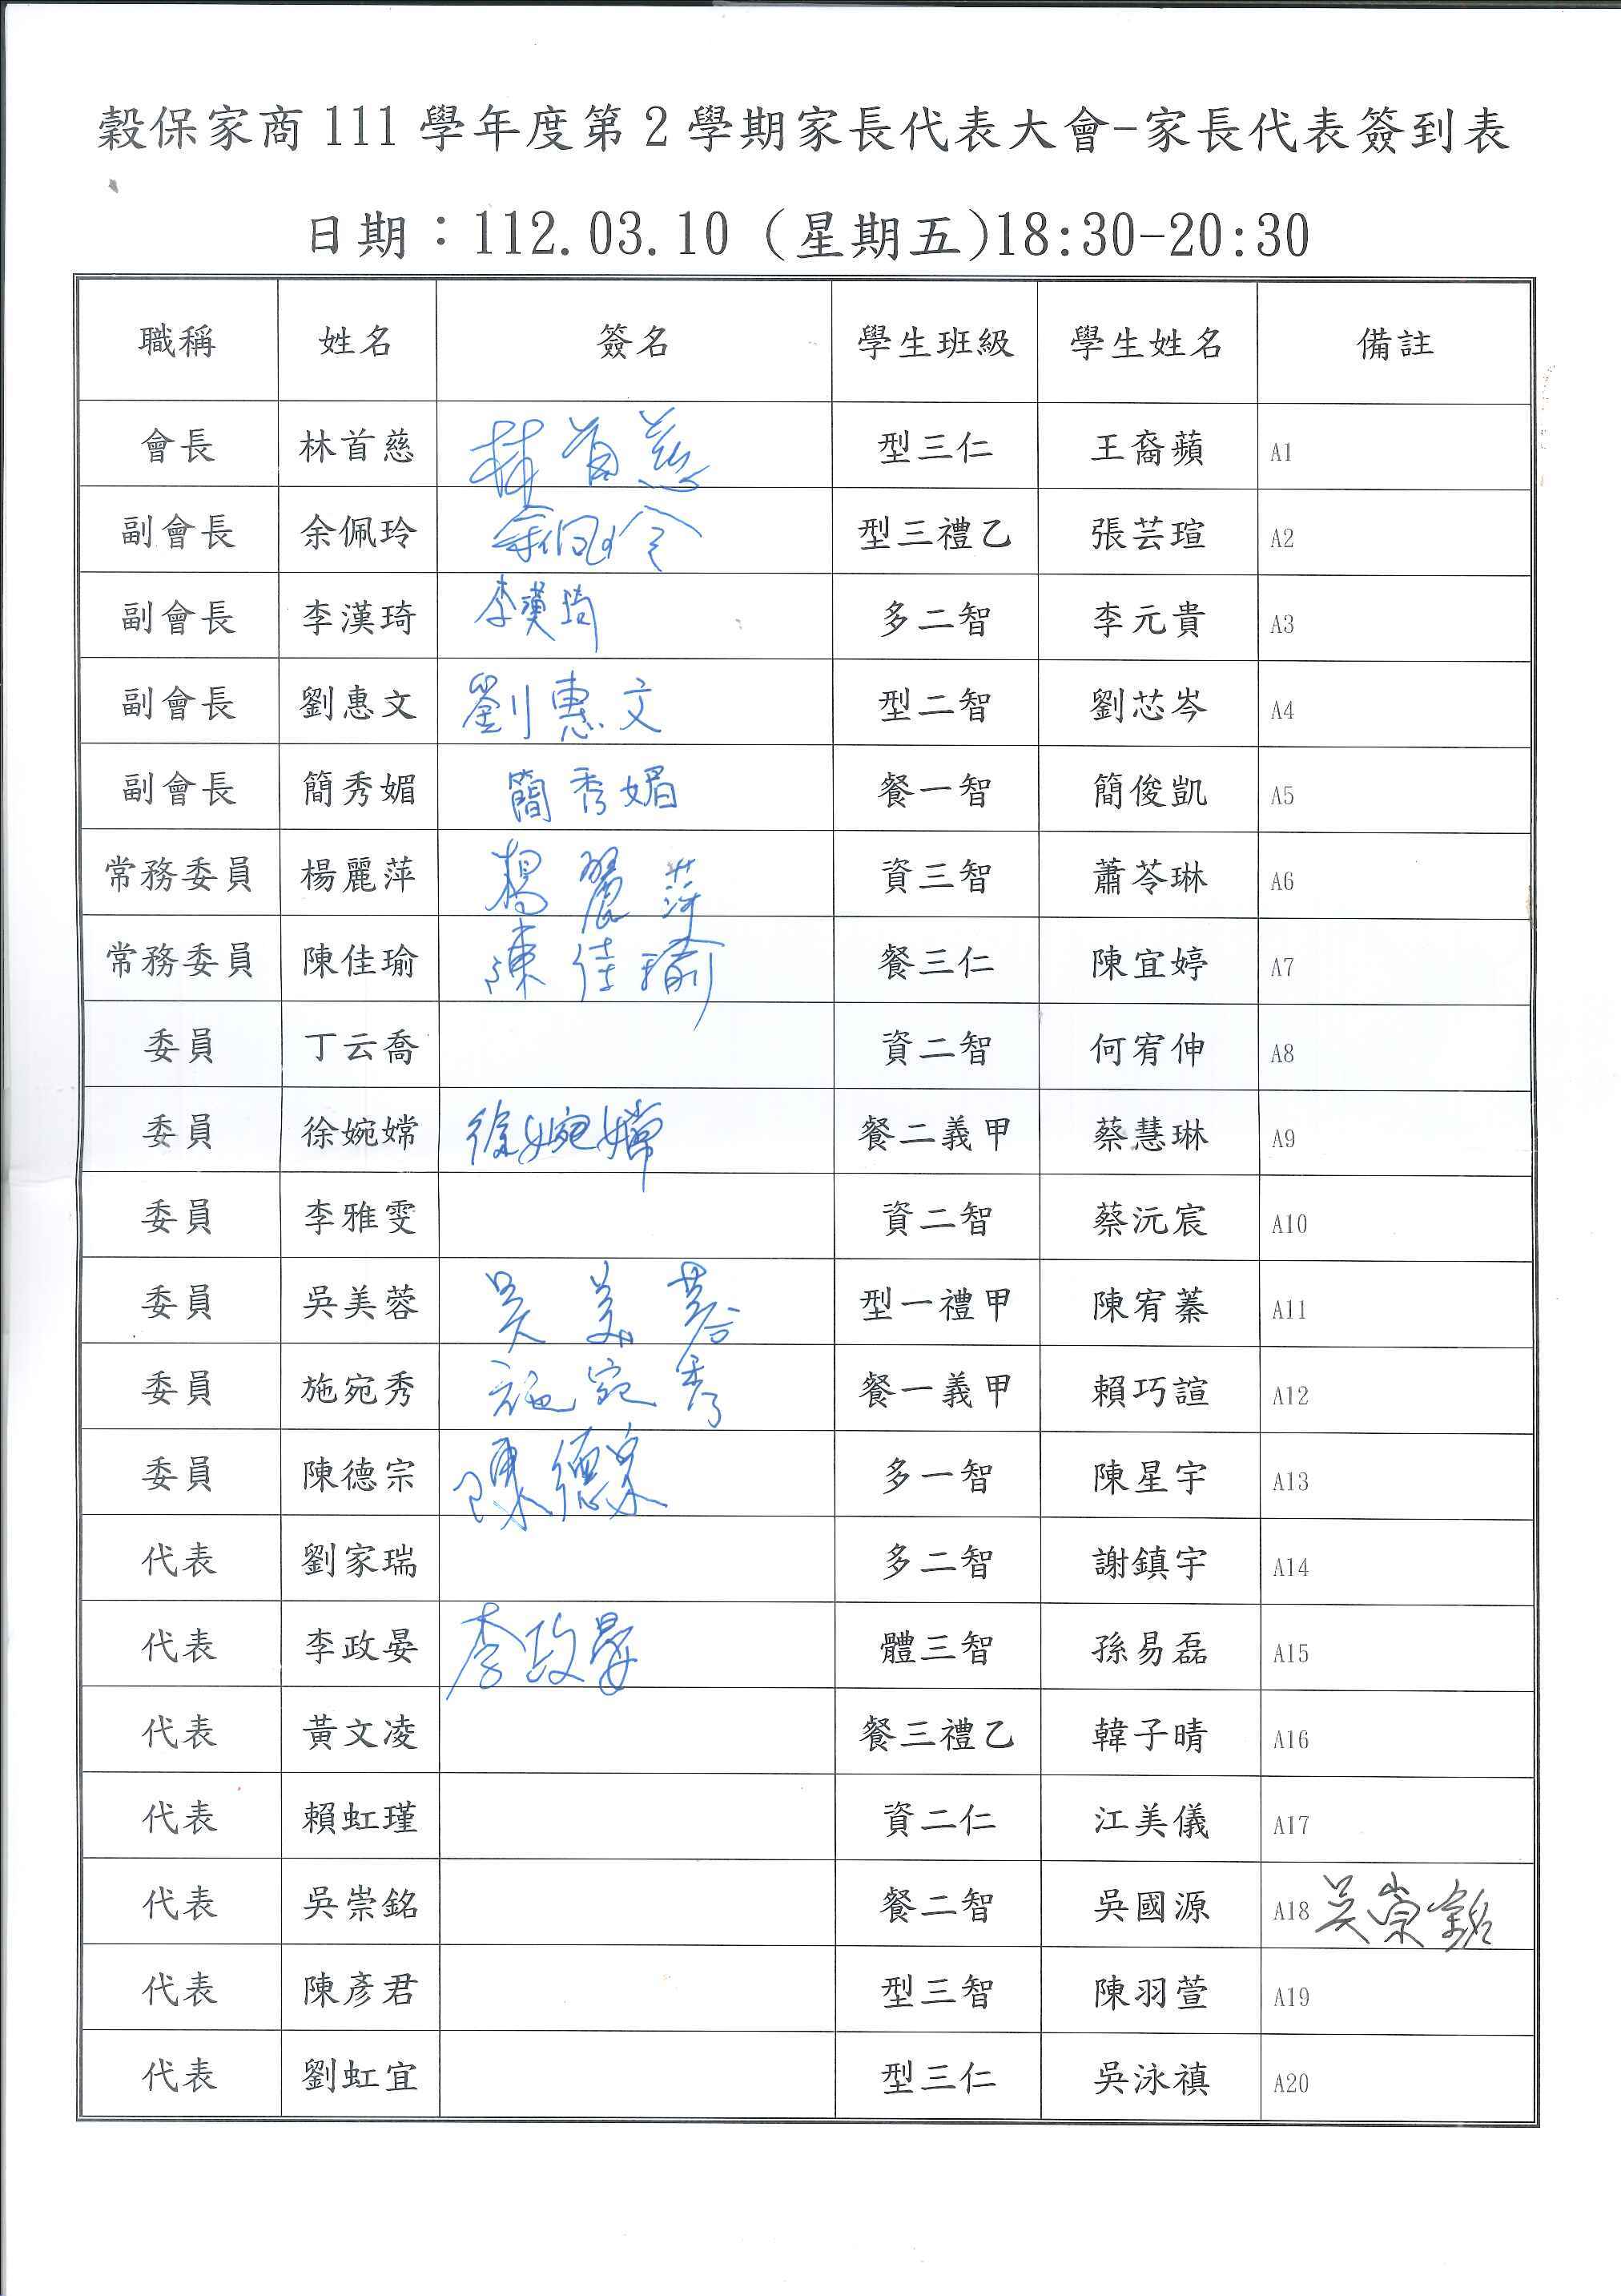 穀保家商111學年度第2學期家長代表大會-家長代表簽到表
日期：112.03.10 (星期五)18:30-20:30
職稱 姓名 簽名 學生班級 學生姓名 備註
會長 林首慈 林首慈 型三仁 王裔蘋 A1
副會長 余佩玲 余佩玲 型三禮乙 張芸瑄 A2
副會長 李漢琦 李漢琦 多二智 李元貴 A3
副會長 劉惠文 劉惠文 型二智 劉芯岑 A4
副會長 簡秀媚 簡秀媚 餐一智 簡俊凱 A5
常務委員 楊麗萍 楊麗萍 資三智 蕭苓琳 A6
常務委員 陳佳瑜 陳佳瑜 餐三仁 陳宜婷 A7
委員 丁云喬 資二智 何宥伸 A8
委員 徐婉嫦 徐婉嫦 餐二義甲 蔡慧琳 A9
委員 李雅雯 資二智 蔡沅宸 A10
委員 吳美蓉 吳美蓉 型一禮甲 陳宥蓁 A11
委員 施宛秀 施宛秀 餐一義甲 賴巧諠 A12
委員 陳德宗 陳德宗 多一智 陳星宇 A13
代表 劉家瑞 多二智 謝鎮宇 A14
代表 李政晏 李政晏 體三智 孫易磊 A15
代表 黃文凌 餐三禮乙 韓子晴 A16
代表 賴虹瑾 資二仁 江美儀 A17
代表 吳崇銘 餐二智 吳國源 A18 吳崇銘
代表 陳彥君 型三智 陳羽萱 A19
代表 劉虹宜 型三仁 吳泳禛 A20